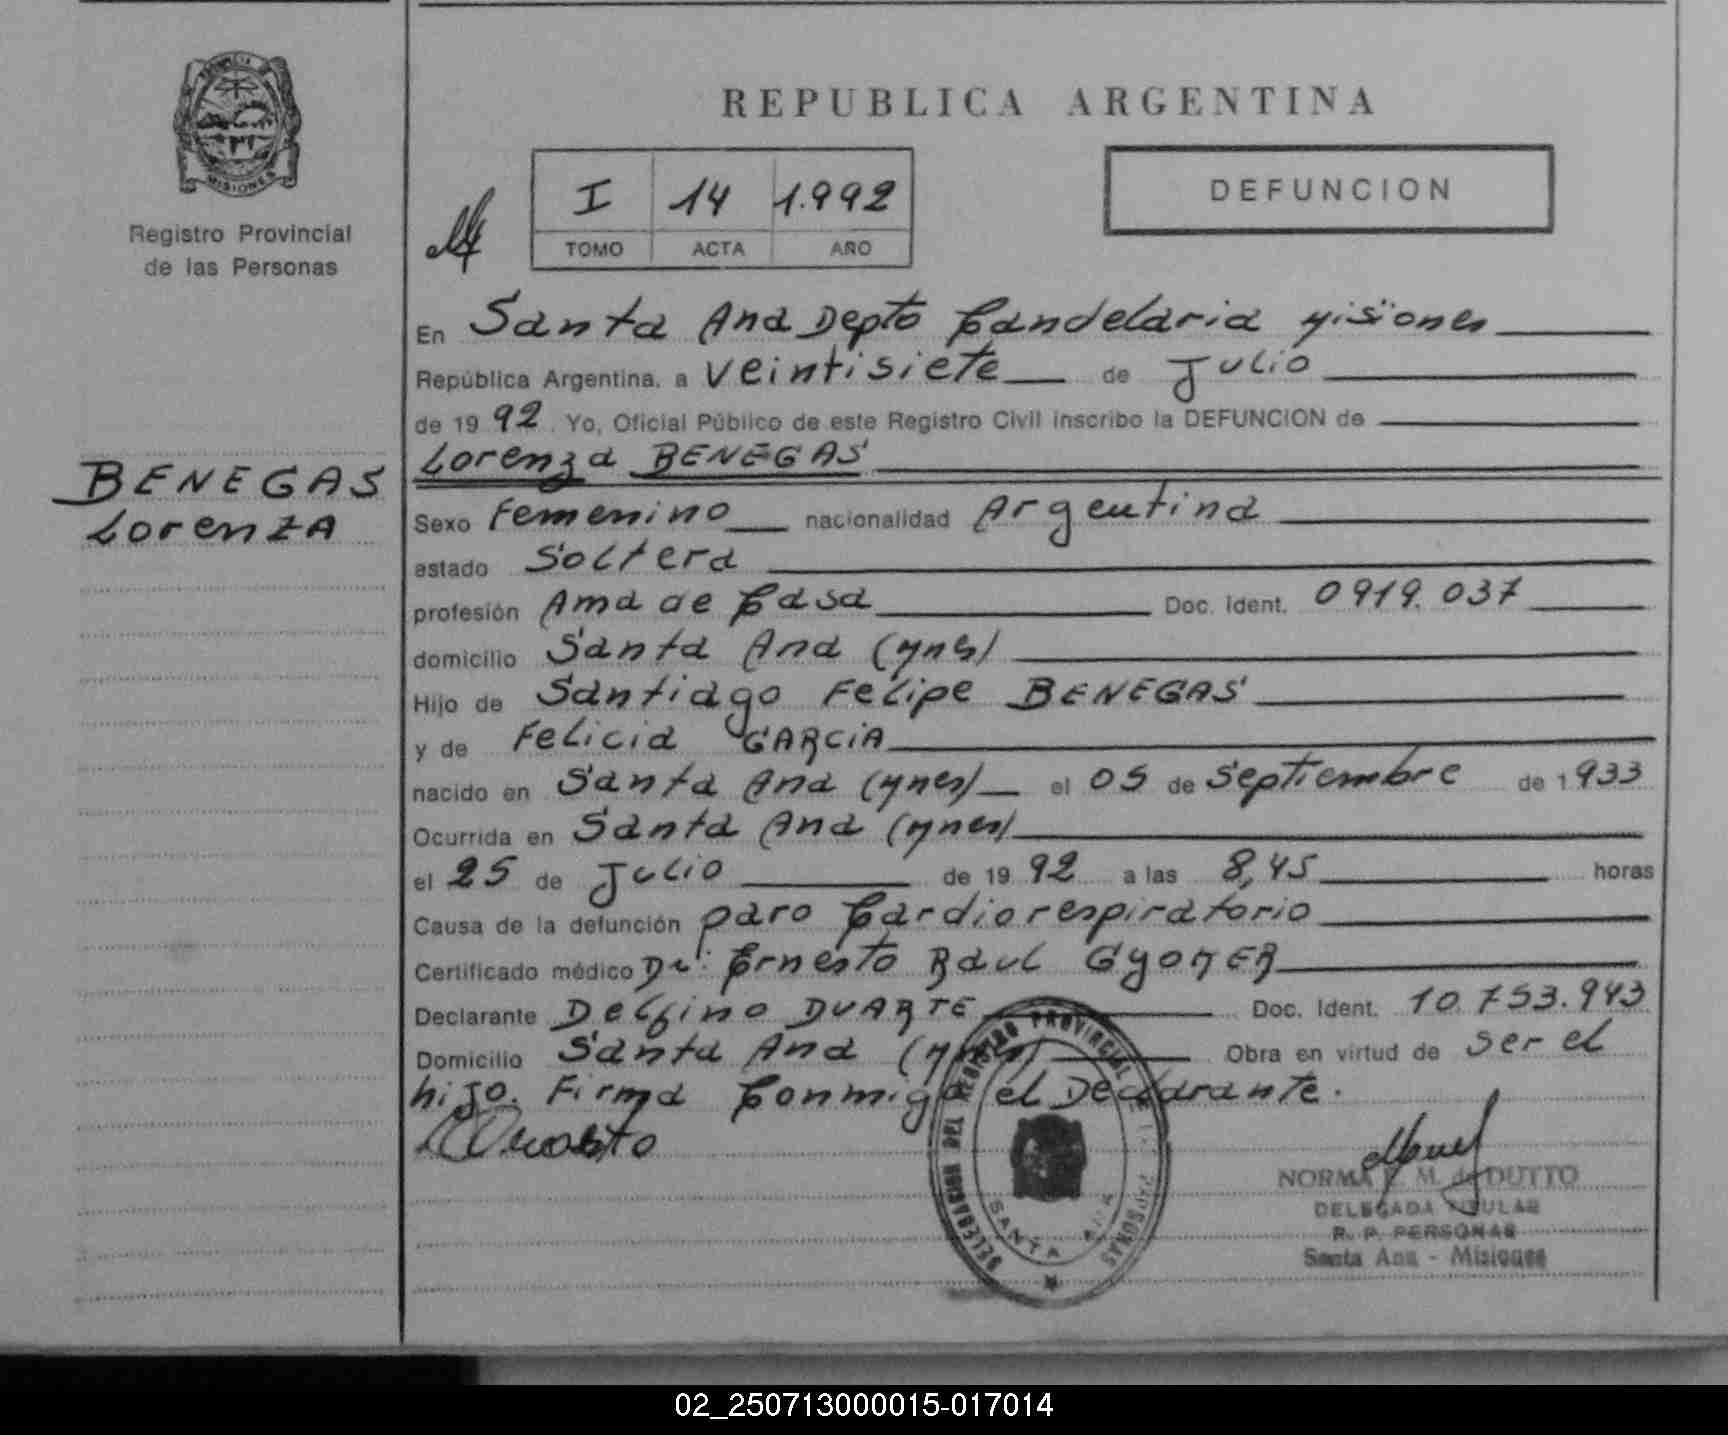 PROVINCIA DE
MISIONES
Registro Provincial
de las Personas
BENEGAS
Lorenza
REPUBLICA ARGENTINA
I 14 1.992
TOMO ACTA AÑO
DEFUNCION
En Santa Ana Depto Candelaria Misiones
República Argentina, a veintisiete de Julio
de 19 92. Yo, Oficial Público de este Registro Civil inscribo la DEFUNCION de
Lorenza BENEGAS
Sexo Femenino nacionalidad Argentina
estado Soltera
profesión Ama de Casa Doc. Ident. 0919.037
domicilio Santa Ana (Mnes)
Hijo de Santiago Felipe BENEGAS
y de Felicia GARCIA
nacido en Santa Ana (Mnes) el 05 de Septiembre de 1933
Ocurrida en Santa Ana (Mnes)
el 25 de Julio de 19 92 a las 8,45 horas
Causa de la defunción paro Cardiorespiratorio
Certificado médico Dr. Ernesto Raul GYOMER
Declarante Delfino DUARTE Doc. Ident. 10.753.943
Domicilio Santa Ana (Mnes) Obra en virtud de ser el
hijo. Firma Conmigo el Declarante.
DELEGACION DEL REGISTRO PROVINCIAL DE LAS PERSONAS
SANTA ANA
NORMA M. de DUTTO
DELEGADA TITULAR
R. P. PERSONAS
Santa Ana - Misiones
02_250713000015-017014